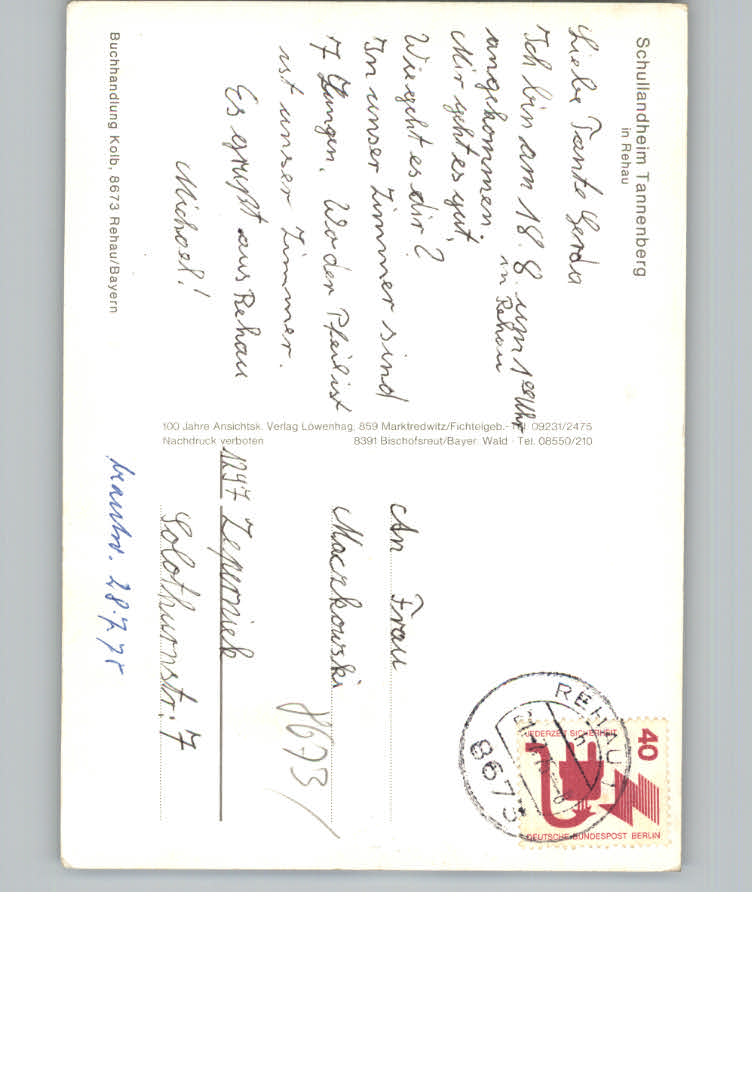 Schullandheim Tannenberg
in Rehau
Liebe Tante Gerda
Ich bin am 18. 8. um 1⁰⁰ Uhr
in Rehau
angekommen.
Mir geht es gut.
Wie geht es dir?
In unser Zimmer sind
7 Jungen. Wo der Pfeil ist
ist unser Zimmer.
Es grüßt aus Rehau
Michael!
Buchhandlung Kolb, 8673 Rehau/Bayern
100 Jahre Ansichtsk. Verlag Löwenhag, 859 Marktredwitz/Fichtelgeb.-Tel. 09231/2475
Nachdruck verboten 8391 Bischofsreut/Bayer. Wald · Tel. 08550/210
An Frau
Maczkowski
1297 Zepernick
Solothurnstr. 7
8673
28.7.75
REHAU 1
8673
40
JEDERZEIT SICHERHEIT
DEUTSCHE BUNDESPOST BERLIN